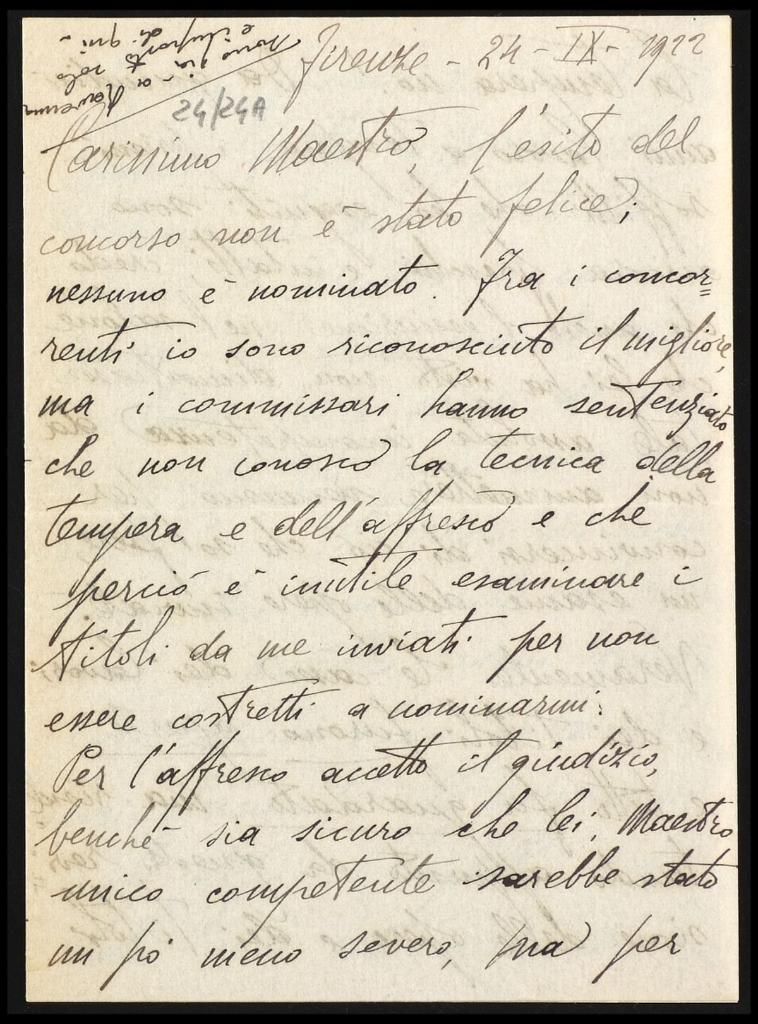 Firenze - 24 - IX - 1922
24/24A
Carissimo Maestro, l'ésito del
concorso non è stato felice;
nessuno è nominato. Fra i concor=
renti io sono riconosciuto il migliore,
ma i commissari hanno sentenziato
che non conosco la tecnica della
tempera e dell'affresco e che
perciò è inutile esaminare i
titoli da me inviati per non
essere costretti a nominarmi.
Per l'affresco accetto il giudizio,
benché sia sicuro che lei, Maestro
unico competente sarebbe stato
un pó meno severo, ma per